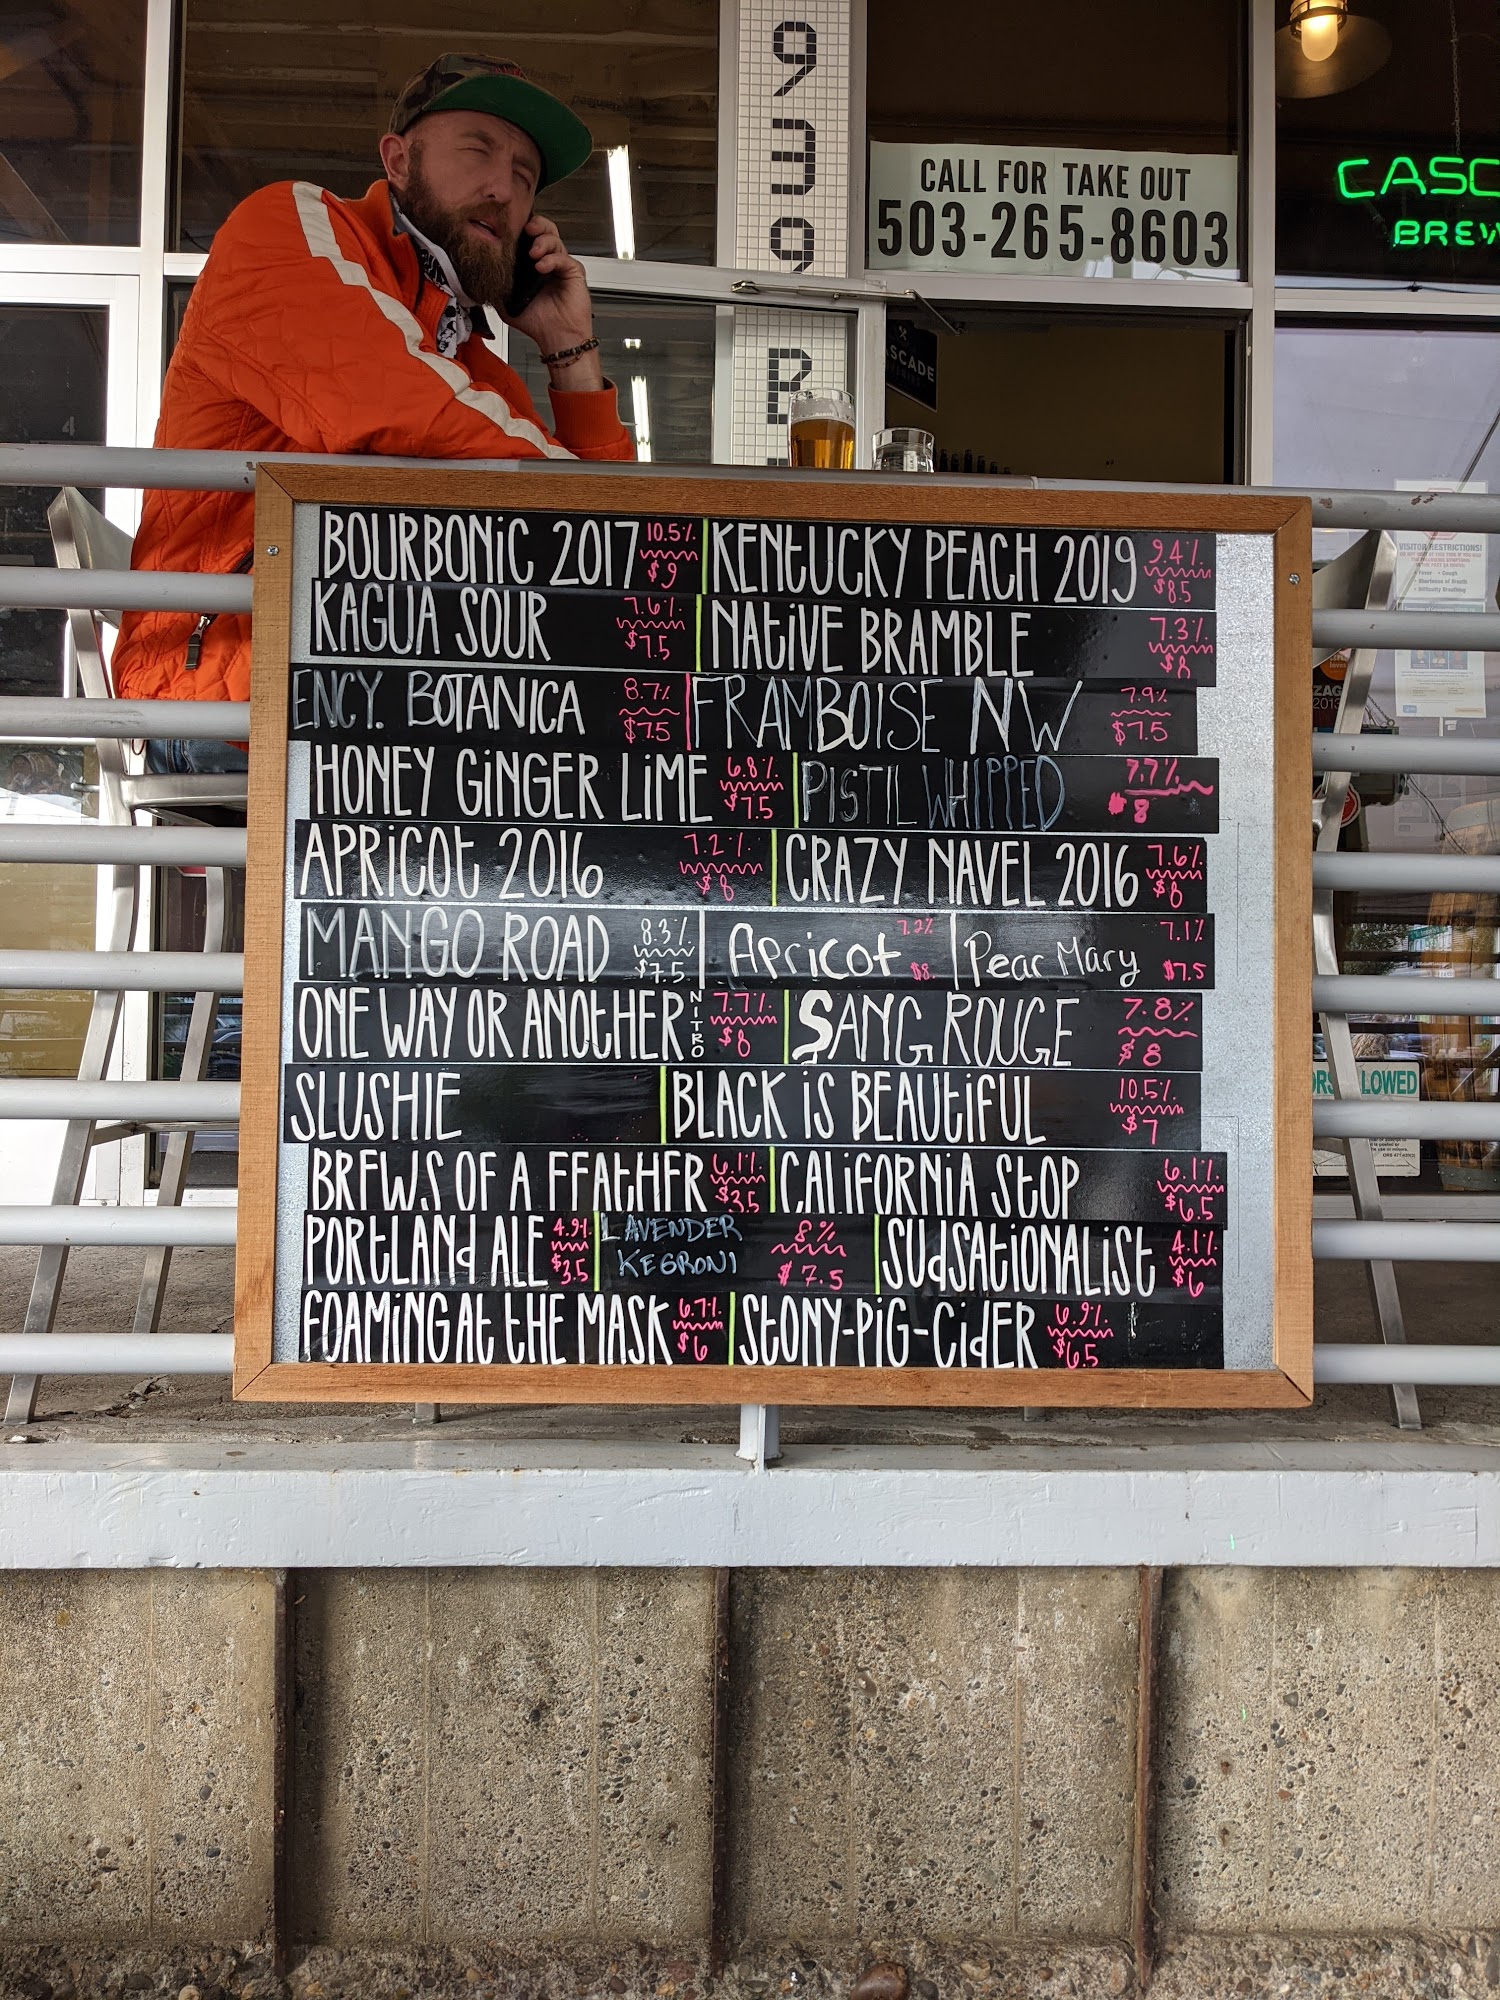 939 B
CALL FOR TAKE OUT
503-265-8603
CASC
BREW
CASCADE
VISITOR RESTRICTIONS!
BOURBONiC 2017 10.5% $9 KENtUCKY PEACH 2019 9.4% $8.5
KAGUA SOUR 7.6% $7.5 NAtiVE BRAMBLE 7.3% $8
ENCY. BOTANICA 8.7% $7.5 FRAMBOISE NW 7.9% $7.5
HONEY GiNGER LiME 6.8% $7.5 PISTIL WHIPPED 7.7% $8
APRiCOt 2016 7.2% $8 CRAZY NAVEL 2016 7.6% $8
MANGO ROAD 8.3% $7.5 Apricot 7.2% $8. Pear Mary 7.1% $7.5
ONE WAY OR ANOtHER NITRO 7.7% $8 SANG ROUGE 7.8% $8
SLUSHIE BLACK iS BEAUtiFUL 10.5% $7
BREWS OF A FEAtHER 6.1% $3.5 CALiFORNiA StOP 6.1% $6.5
PORtLANd ALE 4.9% $3.5 LAVENDER KEGRONI 8% $7.5 SUdSAtiONALiSt 4.1% $6
FOAMiNG At tHE MASK 6.7% $6 StONY-PiG-CidER 6.9% $6.5
LOWED